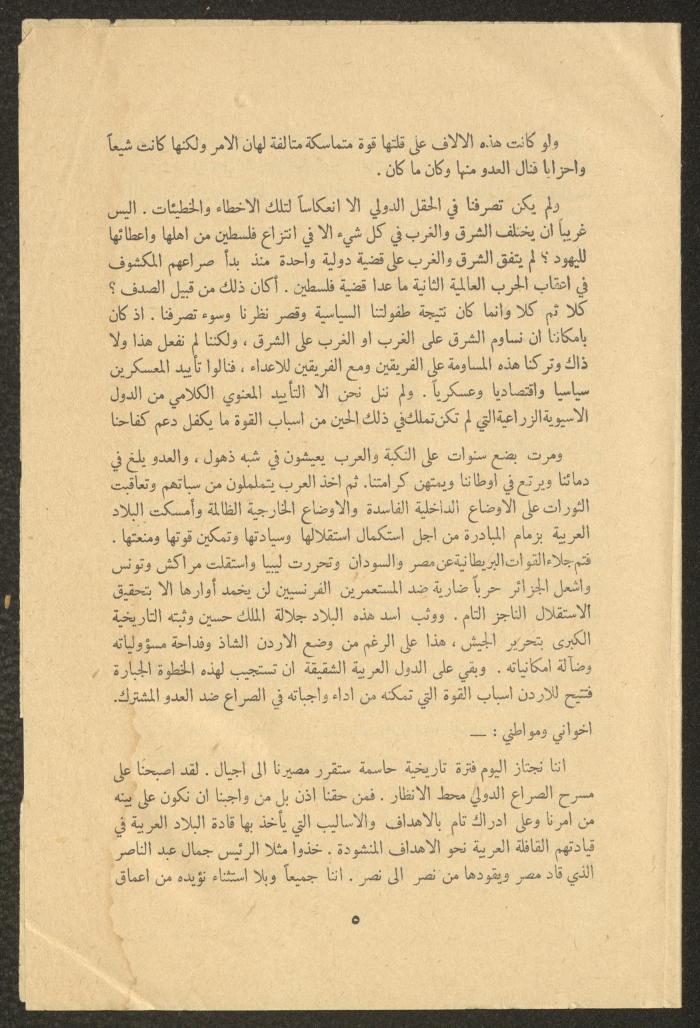 ولو كانت هذه الالاف على قلتها قوة متماسكة متالفة لهان الامر ولكنها كانت شيعاً
واحزابا فنال العدو منها وكان ما كان .
ولم يكن تصرفنا في الحقل الدولي الا انعكاساً لتلك الاخطاء والخطيئات . اليس
غريباً ان يختلف الشرق والغرب في كل شيء الا في انتزاع فلسطين من اهلها واعطائها
لليهود ؟ لم يتفق الشرق والغرب على قضية دولية واحدة منذ بدأ صراعهم المكشوف
في اعقاب الحرب العالمية الثانية ما عدا قضية فلسطين . أكان ذلك من قبيل الصدف ؟
كلا ثم كلا وانما كان نتيجة طفولتنا السياسية وقصر نظرنا وسوء تصرفنا . اذ كان
بامكاننا ان نساوم الشرق على الغرب او الغرب على الشرق ، ولكننا لم نفعل هذا ولا
ذاك وتركنا هذه المساومة على الفريقين ومع الفريقين للاعداء ، فنالوا تأييد المعسكرين
سياسيا واقتصاديا وعسكرياً . ولم ننل نحن الا التأييد المعنوي الكلامي من الدول
الاسيوية الزراعية التي لم تكن تملك في ذلك الحين من اسباب القوة ما يكفل دعم كفاحنا
ومرت بضع سنوات على النكبة والعرب يعيشون في شبه ذهول ، والعدو يلغ في
دمائنا ويرتع في اوطاننا ويمتهن كرامتنا. ثم اخذ العرب يتململون من سباتهم وتعاقبت
الثورات على الاوضاع الداخلية الفاسدة والاوضاع الخارجية الظالمة وأمسكت البلاد
العربية بزمام المبادرة من اجل استكمال استقلالها وسيادتها وتمكين قوتها ومنعتها .
فتم جلاء القوات البريطانية عن مصر والسودان وتحررت ليبيا واستقلت مراكش وتونس
واشعل الجزائر حرباً ضارية ضد المستعمرين الفرنسيين لن يخمد أوارها الا بتحقيق
الاستقلال الناجز التام . ووثب اسد هذه البلاد جلالة الملك حسين وثبته التاريخية
الكبرى بتحرير الجيش ، هذا على الرغم من وضع الاردن الشاذ وفداحة مسؤولياته
وضآلة امكانياته . وبقي على الدول العربية الشقيقة ان تستجيب لهذه الخطوة الجبارة
فتتيح للاردن اسباب القوة التي تمكنه من اداء واجباته في الصراع ضد العدو المشترك.
اخواني ومواطني : —
اننا نجتاز اليوم فترة تاريخية حاسمة ستقرر مصيرنا الى اجيال . لقد اصبحنا على
مسرح الصراع الدولي محط الانظار . فمن حقنا اذن بل من واجبنا ان نكون على بينه
من امرنا وعلى ادراك تام بالاهداف والاساليب التي يأخذ بها قادة البلاد العربية في
قيادتهم القافلة العربية نحو الاهداف المنشودة . خذوا مثلا الرئيس جمال عبد الناصر
الذي قاد مصر ويقودها من نصر الى نصر . اننا جميعاً وبلا استثناء نؤيده من اعماق
٥